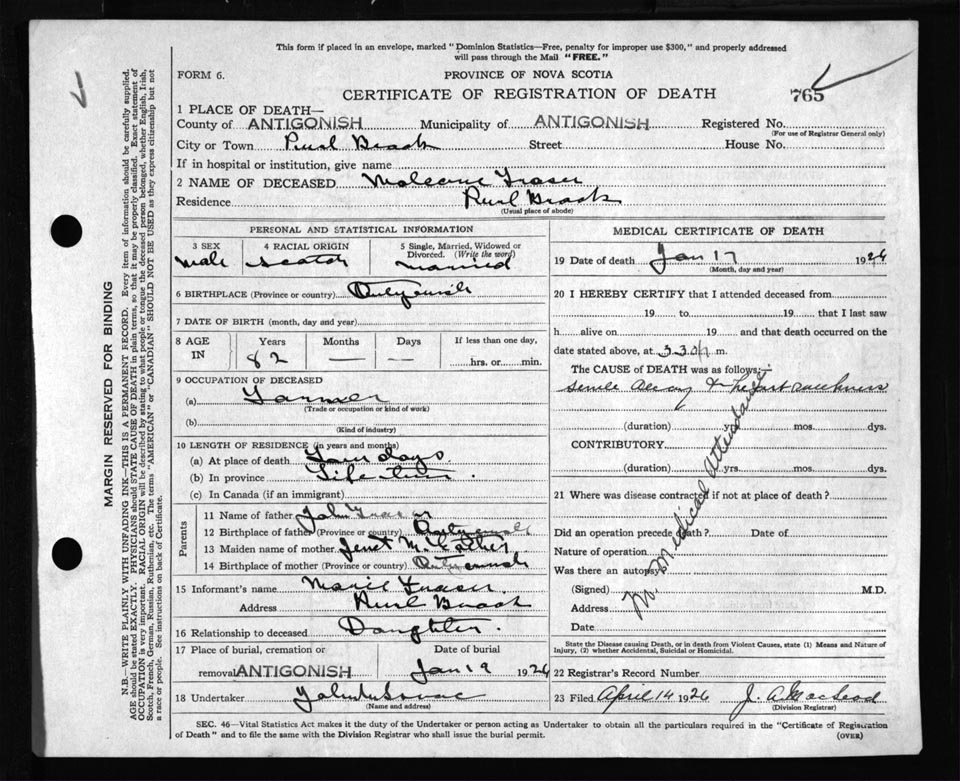 This form if placed in an envelope, marked "Dominion Statistics—Free, penalty for improper use $300," and properly addressed
will pass through the Mail "FREE."
FORM 6.
PROVINCE OF NOVA SCOTIA
CERTIFICATE OF REGISTRATION OF DEATH
765
1 PLACE OF DEATH—
County of ANTIGONISH Municipality of ANTIGONISH Registered No.
(For use of Registrar General only)
City or Town Street House No.
If in hospital or institution, give name
2 NAME OF DECEASED Fraser
Residence
(Usual place of abode)
PERSONAL AND STATISTICAL INFORMATION
3 SEX 4 RACIAL ORIGIN 5 Single, Married, Widowed or
Divorced. (Write the word)
Male Scotch Married
6 BIRTHPLACE (Province or country) Antigonish
7 DATE OF BIRTH (month, day and year)
8 AGE IN Years Months Days If less than one day,
82 — — hrs. or min.
9 OCCUPATION OF DECEASED
(a) Farmer
(Trade or occupation or kind of work)
(b)
(Kind of industry)
10 LENGTH OF RESIDENCE (in years and months)
(a) At place of death days
(b) In province Life time
(c) In Canada (if an immigrant)
Parents
11 Name of father John Fraser
12 Birthplace of father (Province or country) Antigonish
13 Maiden name of mother
14 Birthplace of mother (Province or country) Antigonish
15 Informant's name Fraser
Address
16 Relationship to deceased Daughter.
17 Place of burial, cremation or Date of burial
removal ANTIGONISH Jan 19 1926
18 Undertaker
(Name and address)
MEDICAL CERTIFICATE OF DEATH
19 Date of death Jan 17 1926
(Month, day and year)
20 I HEREBY CERTIFY that I attended deceased from
19 to 19 that I last saw
h alive on 19 and that death occurred on
date stated above, at 3.30 m.
The CAUSE of DEATH was as follows:—
Senile &
(duration) mos. dys.
CONTRIBUTORY
(duration) yrs. mos. dys.
21 Where was disease contracted if not at place of death?
Did an operation precede death? Date of
Nature of operation
Was there an autopsy?
(Signed) M.D.
Address
Date
Medical
State the Disease causing Death, or in death from Violent Causes, state (1) Means and Nature of
Injury, (2) whether Accidental, Suicidal or Homicidal.
22 Registrar's Record Number
23 Filed April 14 1926 J. A. MacLeod
(Division Registrar)
SEC. 46—Vital Statistics Act makes it the duty of the Undertaker or person acting as Undertaker to obtain all the particulars required in the "Certificate of Registration
of Death" and to file the same with the Division Registrar who shall issue the burial permit.
(OVER)
MARGIN RESERVED FOR BINDING
N.B.—WRITE PLAINLY WITH UNFADING INK—THIS IS A PERMANENT RECORD. Every item of information should be carefully supplied.
AGE should be stated EXACTLY. PHYSICIANS should STATE CAUSE OF DEATH in plain terms, so that it may be properly classified. Exact statement of
OCCUPATION is very important. RACIAL ORIGIN will be described by stating to what people or tongue the deceased person belonged, whether English, Irish,
Scotch, French, German, Russian, Ruthenian, etc. The terms "AMERICAN" or "CANADIAN" SHOULD NOT BE USED as they express citizenship but not
a race or people. See instructions on back of Certificate.